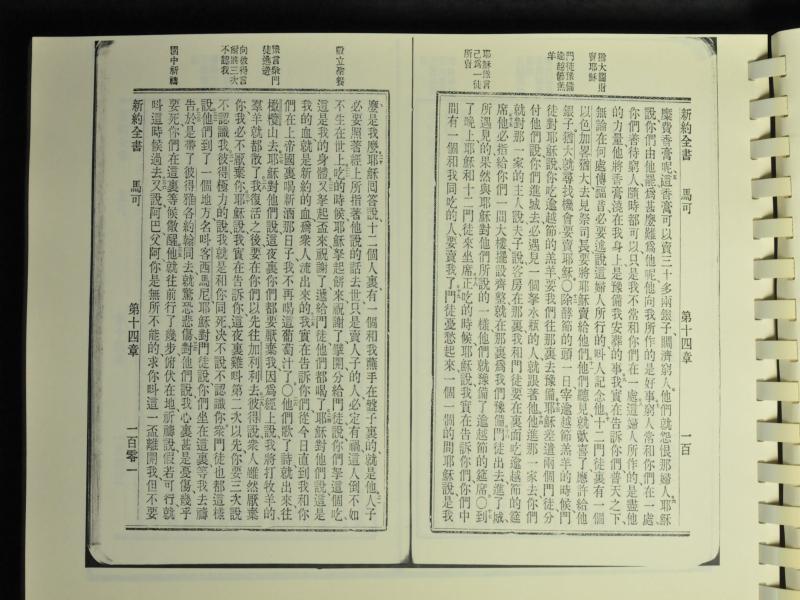 猶大圖財
賣耶穌
門徒豫備
逾越節羔
羊
耶穌豫言
己為一徒
所賣
新約全書 馬可 第十四章 一百
糜費香膏呢這香膏可以賣三十多兩銀子賙濟窮人他們就怨恨那婦人耶穌
說你們由他罷爲甚麼難爲他呢他向我所作的是好事窮人常和你們在一處
你們要善待窮人隨時都可以只是我不常和你們在一處這婦人所作的是盡他
的力量他將香膏澆在我身上是豫備我安葬的事我實在告訴你們普天之下
無論在何處傳福音必要述說這婦人所行的呌人記念他十二門徒裏有一個
以色加畧猶大去見祭司長要將耶穌賣給他們他們聽見就歡喜了應許給他
銀子猶大就尋找機會要賣耶穌○除酵節的頭一日宰逾越節羔羊的時候門
徒對耶穌說你吃逾越節的羔羊要我們往那裏去豫備耶穌差遣兩個門徒分
付他們說你們進城去必遇見一個拏水瓶的人就跟著他他進那一家去你們
就對那一家的主人說夫子說客房在那裏我和門徒要在裏面吃逾越節的筵
席他必指給你們一間大樓擺設齊整就在那裏爲我們豫備門徒出去進了城
所遇見的果然與耶穌對他們所說的一樣他們就豫備了逾越節的筵席○到
了晚上耶穌和十二門徒來坐席正吃的時候耶穌說我實在告訴你們你們中
間有一個和我同吃的人要賣我了門徒憂愁起來一個一個的問耶穌說是我
設立聖餐
豫言門
徒逃避
向彼得言
將三次
不認我
園中祈禱
麼是我麼耶穌回答說十二個人裏有一個和我蘸手在盤子裏的就是他人子
必要照著經上所指著他說的話去世只是賣人子的人必定有禍這人倒不如
不生在世上吃的時候耶穌拏起餅來祝謝了擘開分給門徒說你們拏這個吃
這是我的身體又拏起盃來祝謝了遞給門徒他們都喝了耶穌對他們說這是
我的血就是新約的血爲衆人流出來的我實在告訴你們從今日直到我和你
們在上帝國裏喝新酒那日子我不再喝這葡萄汁了○他們歌了詩就出來往
橄欖山去耶穌對他們說這夜裏你們都要厭棄我因爲經上說我將打牧羊的
羣羊就都散了我復活之後要在你們以先往加利利去彼得說衆人雖然厭棄
你我必不厭棄你耶穌說我實在告訴你這夜裏雞呌第二次以先你要三次說
不認識我彼得極力的說我就是和你同死決不說不認識你衆門徒也都這樣
說他們到了一個地方名呌客西馬尼耶穌對門徒說你們坐在這裏等我去禱
告於是帶了彼得雅各約翰同去就驚恐悲傷對他們說我心裏甚是憂傷幾乎
要死你們在這裏等候儆醒他就往前行了幾步俯伏在地祈禱說倘若可行就
呌這時候過去又說阿巴父阿你是無所不能的求你呌這一盃離開我但不要
新約全書 馬可 第十四章 一百零一